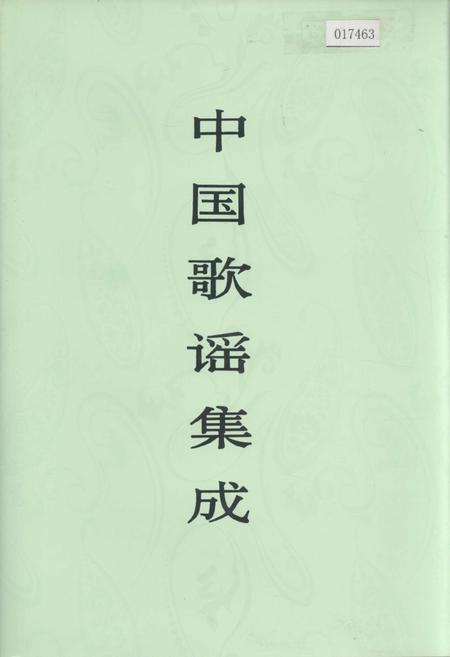 017463
中国歌谣集成